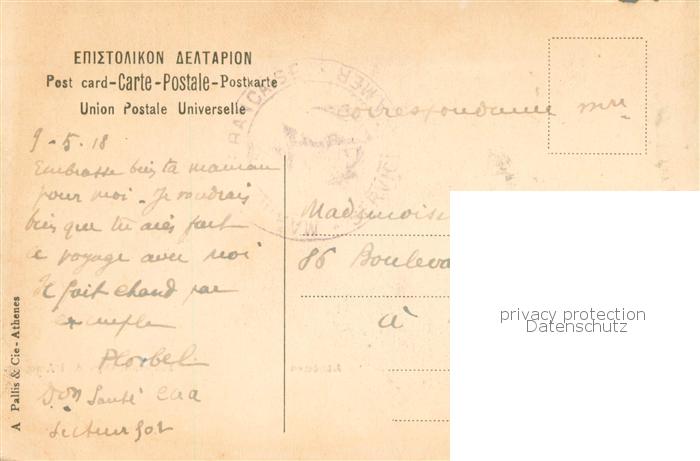 ΕΠΙΣΤΟΛΙΚΟΝ ΔΕΛΤΑΡΙΟΝ
Post card-Carte-Postale-Postkarte
Union Postale Universelle
correspondance
9-5.18
Embrasse bien ta maman
pour moi. Je voudrais
bien que tu aies fait
ce voyage avec moi
Il fait chaud par
exemple
Don Santé
Secteur 501
Mademoise
86 Bouleva
à
A Pallis & Cie - Athenes
privacy protection
Datenschutz